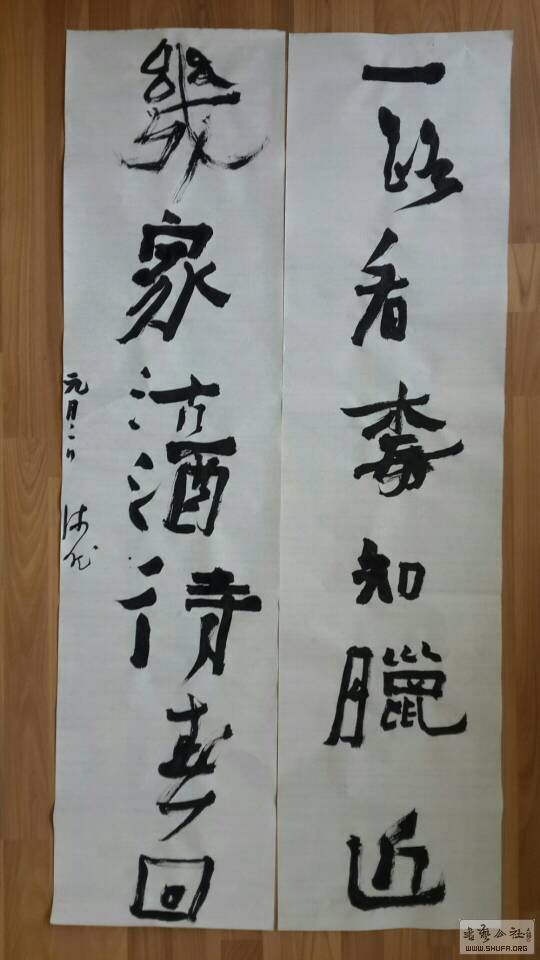 一路看梅知臘近
幾家沽酒待春回
元月二日
書藝公社
WWW.SHUFA.ORG